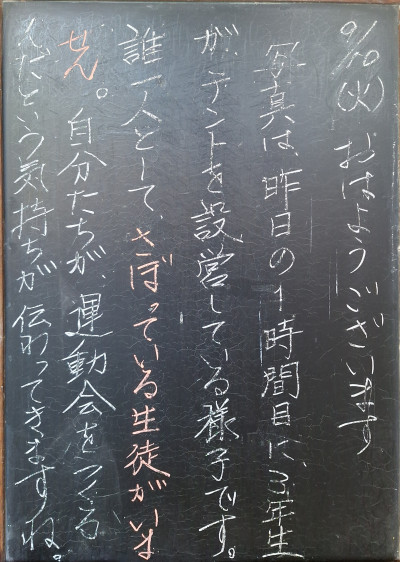 9/10(火) おはようございます
写真は、昨日の1時間目に、3年生
が、テントを設営している様子です。
誰一人として、さぼっている生徒がいま
せん。自分たちが、運動会をつくる
んだという気持ちが伝わってきますね。